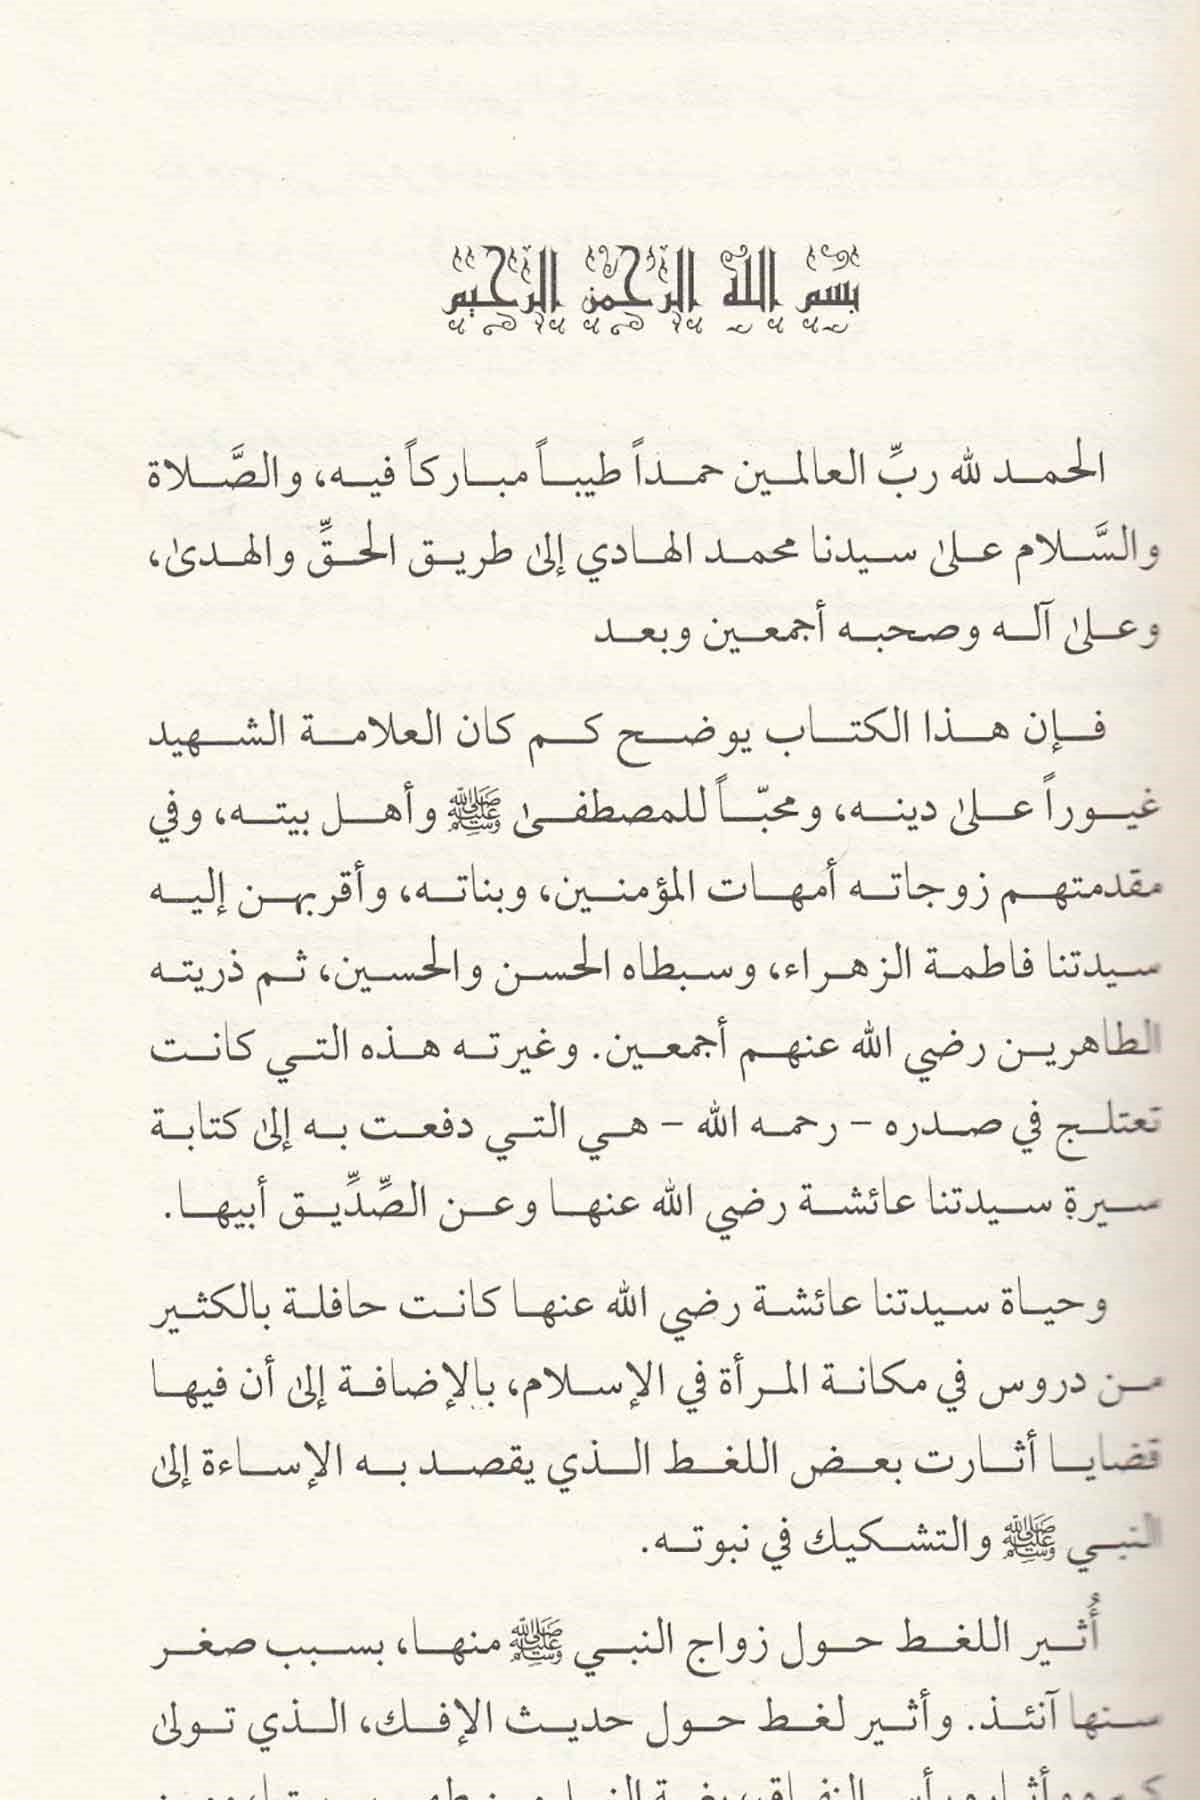 بسم الله الرحمن الرحيم
الحمد لله ربِّ العالمين حمداً طيباً مباركاً فيه، والصَّلاة
والسَّلام على سيدنا محمد الهادي إلى طريق الحقِّ والهدى،
وعلى آله وصحبه أجمعين وبعد
فإن هذا الكتاب يوضح كم كان العلامة الشهيد
غيوراً على دينه، ومحبّاً للمصطفى ﷺ وأهل بيته، وفي
مقدمتهم زوجاته أمهات المؤمنين، وبناته، وأقربهن إليه
سيدتنا فاطمة الزهراء، وسبطاه الحسن والحسين، ثم ذريته
الطاهرين رضي الله عنهم أجمعين. وغيرته هذه التي كانت
تعتلج في صدره – رحمه الله – هي التي دفعت به إلى كتابة
سيرة سيدتنا عائشة رضي الله عنها وعن الصِّدِّيق أبيها.
وحياة سيدتنا عائشة رضي الله عنها كانت حافلة بالكثير
من دروس في مكانة المرأة في الإسلام، بالإضافة إلى أن فيها
قضايا أثارت بعض اللغط الذي يقصد به الإساءة إلى
النبي ﷺ والتشكيك في نبوته.
أُثير اللغط حول زواج النبي ﷺ منها، بسبب صغر
سنها آنئذ. وأثير لغط حول حديث الإفك، الذي تولى